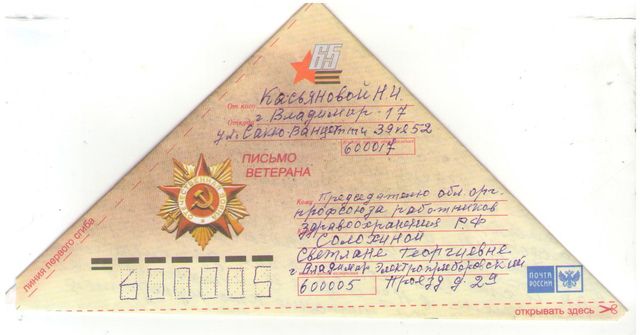 65
От кого Касьяновой Н.И.
Откуда г. Владимир-17
ул. Сакко-Ванцетти 39 кв 52
600017
ПИСЬМО
ВЕТЕРАНА
ОТЕЧЕСТВЕННАЯ ВОЙНА
Кому Председателю обл. орг.
профсоюза работников
здравоохранения РФ
Солохиной
Светлане Георгиевне
г. Владимир Электроприборовский
600005 Проезд д. 29
600005
линия первого сгиба
ПОЧТА
РОССИИ
открывать здесь